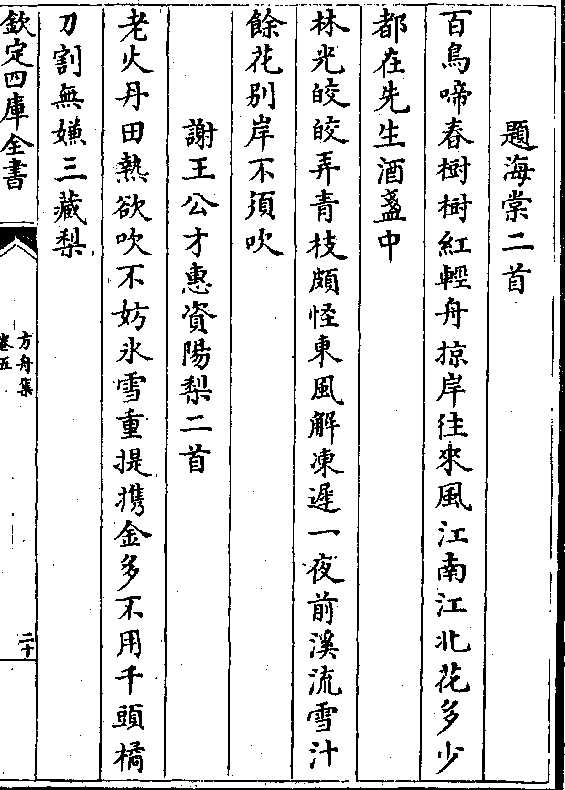 題海棠二首
百鳥啼春樹樹紅輕舟掠岸往來風江南江北花多少
都在先生酒盞中
林光皎皎弄青枝頗怪東風解凍遲一夜前溪流雪汁
餘花別岸不須吹
謝王公才惠資陽梨二首
老火丹田熱欲吹不妨氷雪重提攜金多不用千頭橘
刀割無嫌三藏梨
欽定四庫全書
方舟集
卷五
二十